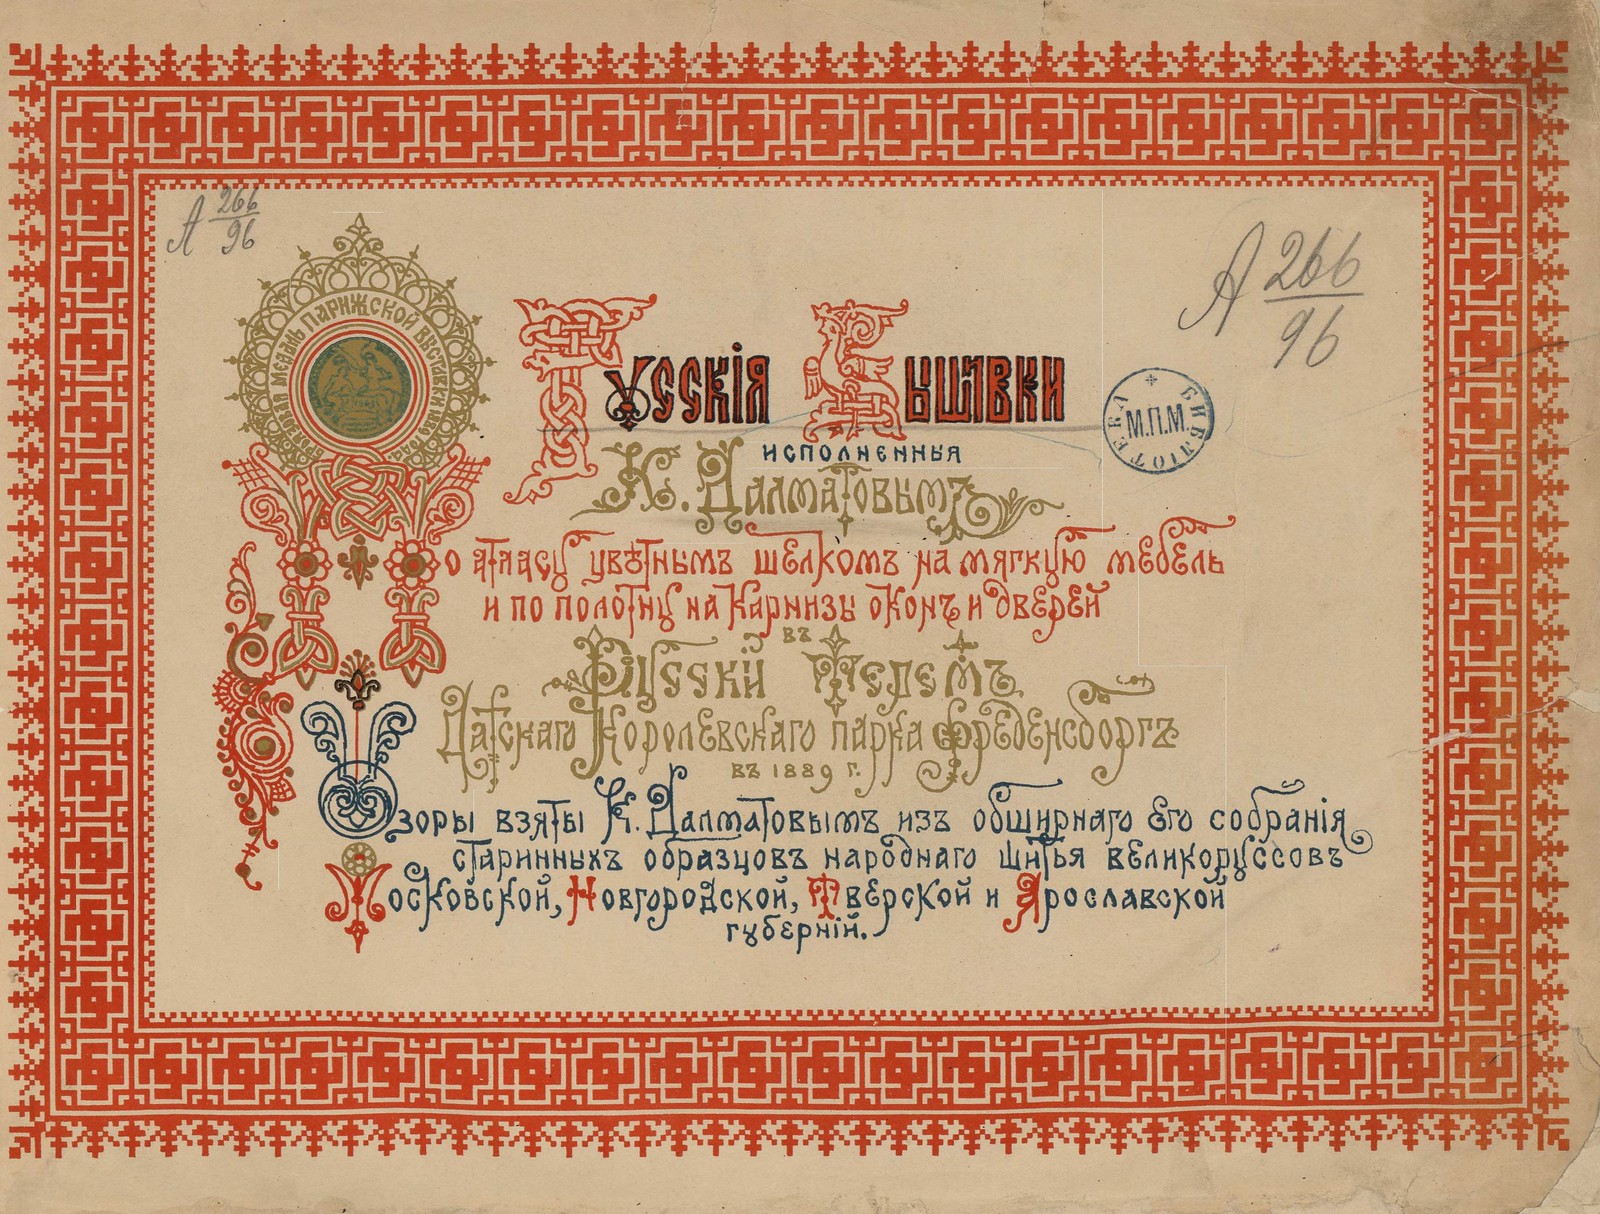 А 266/96
А 266/96
БРОНЗОВАЯ МЕДАЛЬ ПАРИЖСКОЙ ВЫСТАВКИ
Русскія Вышивки
БИБЛІОТЕКА
М.П.М.
исполненныя
К. Далматовымъ
По атласу цвѣтнымъ шелкомъ на мягкую мебель
и по полотну на карнизы оконъ и дверей
въ
Русскій Теремъ
Датскаго Королевскаго парка Фреденсборгъ
въ 1889 г.
Узоры взяты К. Далматовымъ изъ обширнаго его собранія
старинныхъ образцовъ народнаго шитья великоруссовъ
Московской, Новгородской, Тверской и Ярославской
губерній.